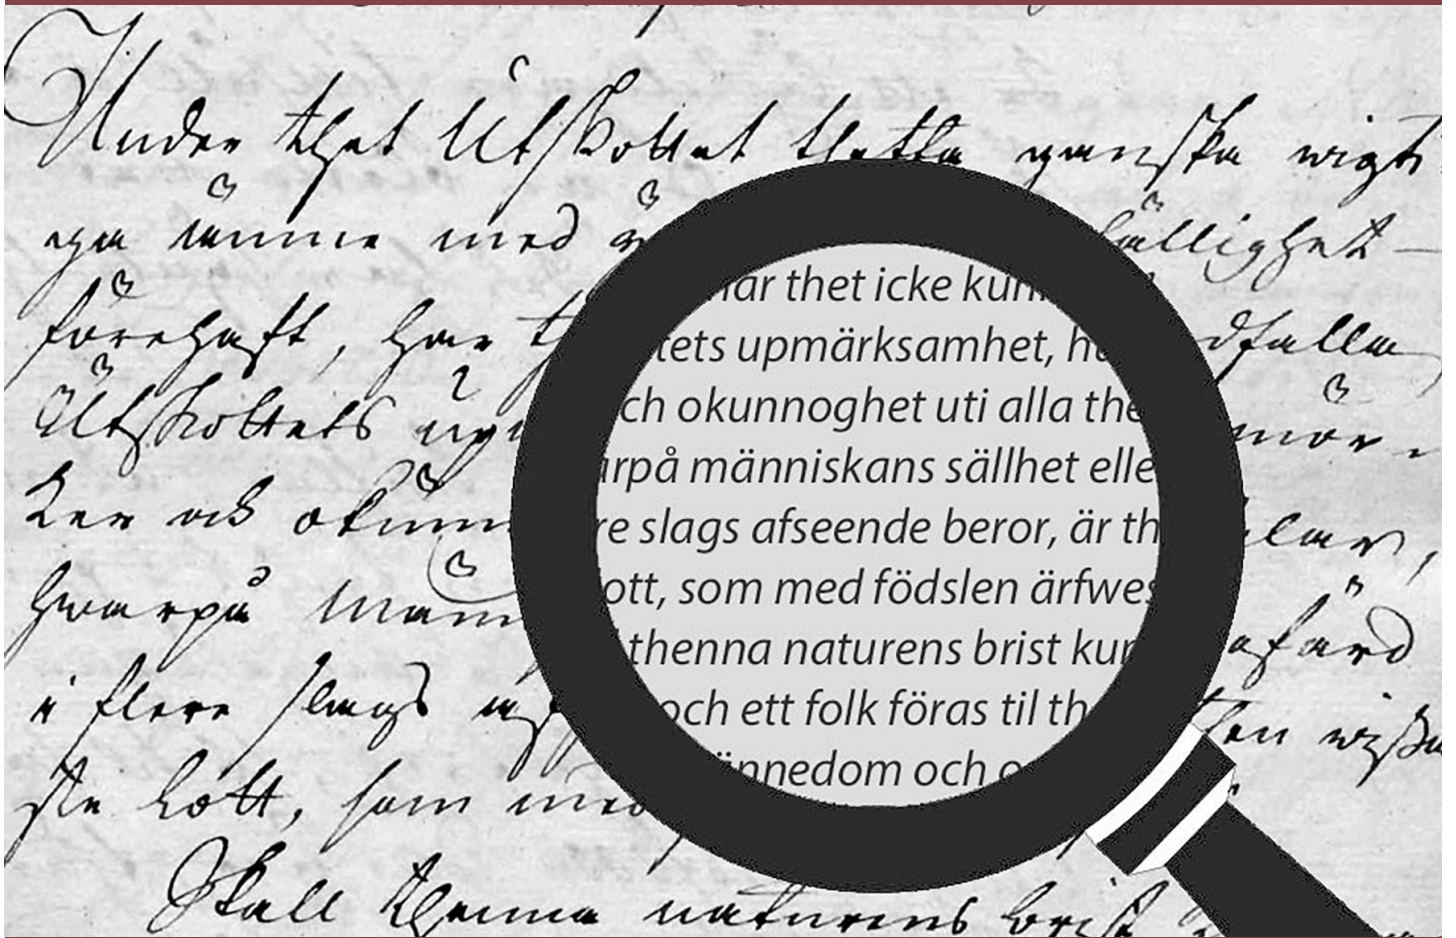 Under thet Utskottet thetta ganska wigti
ga ämne med ö fällighet
förehaft, har t dfalla
Utskottets up mör-
ker och okunn lar,
hwarpå män afärd
i flere slags af then wissa
ste lott, som med
Skall thenna naturens brist
när thet icke kun
tets upmärksamhet, ha
ch okunnoghet uti alla the
arpå människans sällhet elle
re slags afseende beror, är th
ott, som med födslen ärfwes
thenna naturens brist kun
och ett folk föras til th
ännedom och o